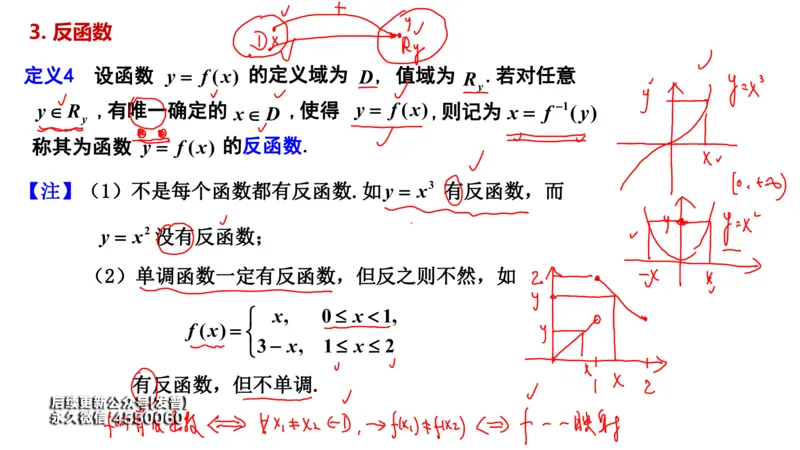 3. 反函数
D x
y
R y
定义4 设函数 y = f(x) 的定义域为 D, 值域为 R_y. 若对任意
y∈R_y, 有唯一确定的 x∈D, 使得 y = f(x), 则记为 x = f⁻¹(y)
称其为函数 y = f(x) 的反函数.
y
y=x³
x
[0,+∞)
【注】(1) 不是每个函数都有反函数. 如 y = x³ 有反函数, 而
y = x² 没有反函数;
y
y=x²
-x x
(2) 单调函数一定有反函数, 但反之则不然, 如
f(x) = { x, 0 ≤ x < 1,
3 − x, 1 ≤ x ≤ 2
2
y
y
x 1 x 2
有反函数, 但不单调.
后续更新公众号(发普)
永久微信(4550060)
⟺ ∀x₁≠x₂∈D, → f(x₁)≠f(x₂) ⟺ f 一一映射